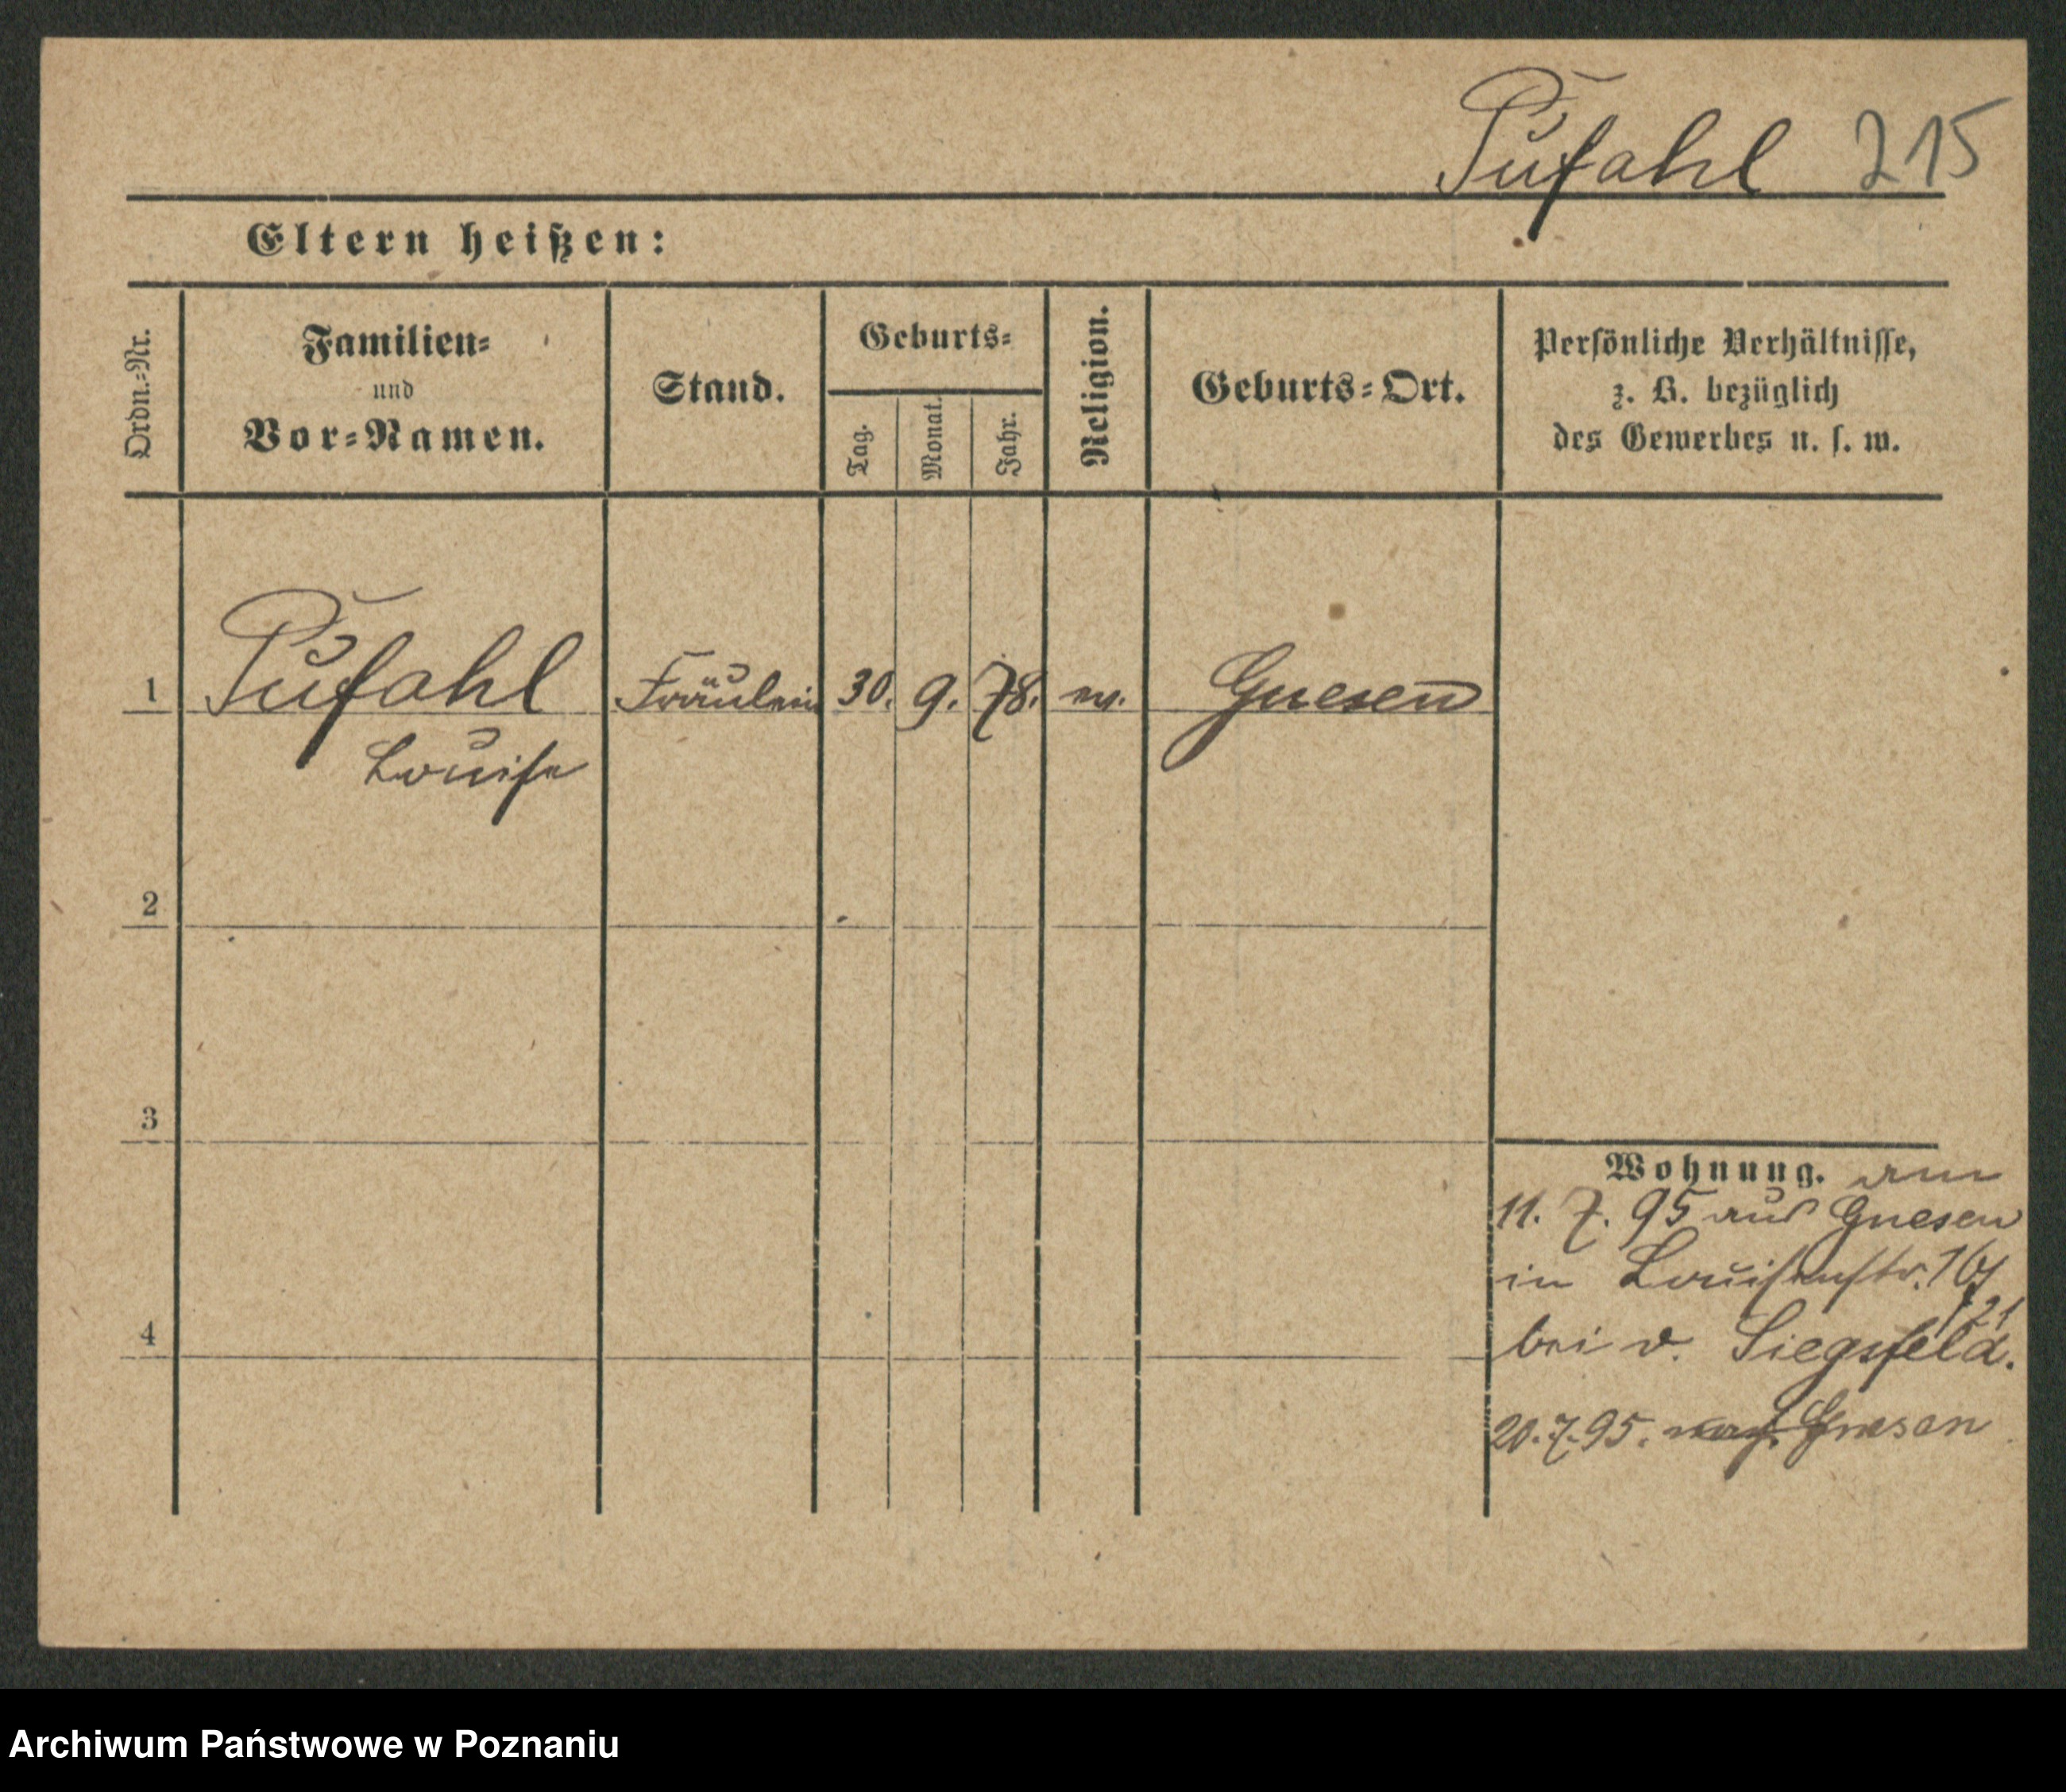 Pufahl 215
Eltern heißen:
Ordn.-Nr.
Familien-
und
Vor-Namen.
Stand.
Geburts-
Tag.
Monat.
Jahr.
Religion.
Geburts-Ort.
Persönliche Verhältnisse,
z. B. bezüglich
des Gewerbes u. s. w.
1 Pufahl Fräulein 30. 9. 78. ev. Gnesen
Louise
2
3
4
Wohnung. am
11. 7. 95 aus Gnesen
in Louisenstr.
bei v. Siegsfeld.
20.7.95. nach Gnesen
Archiwum Państwowe w Poznaniu